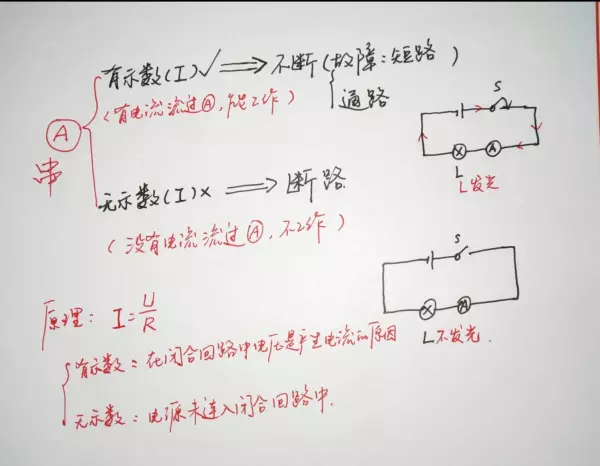 有示数(I)✓ ⟹ 不断(故障:短路)
通路
(有电流流过Ⓐ,能工作)
Ⓐ
串
无示数(I)× ⟹ 断路
(没有电流流过Ⓐ,不工作)
S
L
A
L发光
S
A
L不发光.
原理: I=U/R
有示数:在闭合回路中电压是产生电流的原因
无示数:电源未连入闭合回路中.